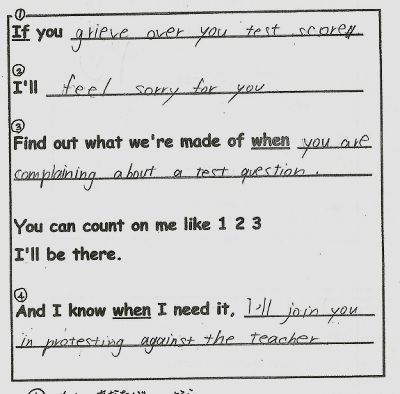 ①
If you grieve over you test scores
②
I'll feel sorry for you
③
Find out what we're made of when you are
complaining about a test question.
You can count on me like 1 2 3
I'll be there.
④
And I know when I need it, I'll join you
in protesting against the teacher